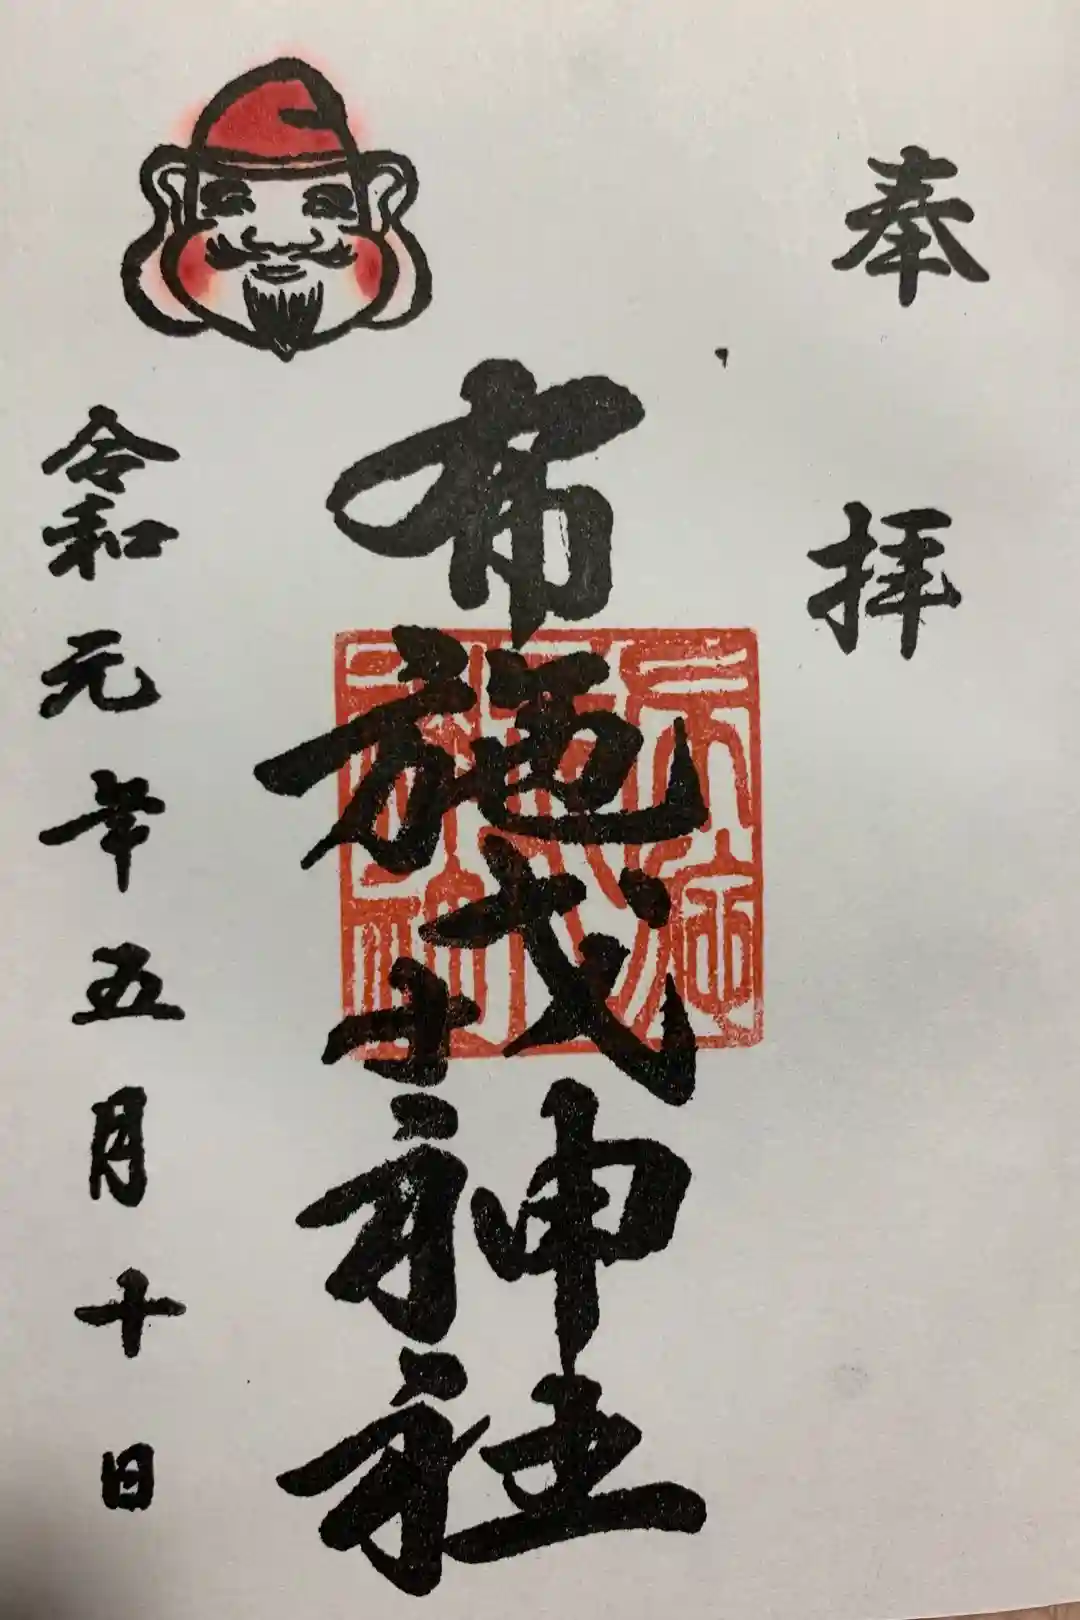 奉拝
布施戎神社
令和元年五月十日